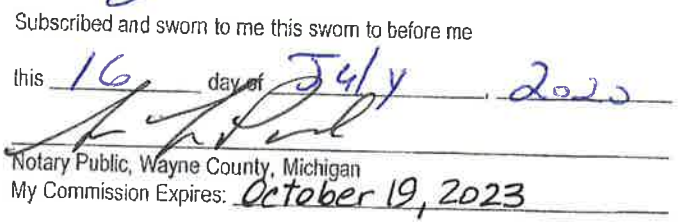 Subscribed and sworn to me this sworn to before me
this 16 day of July, 2020
Notary Public, Wayne County, Michigan
My Commission Expires: October 19, 2023